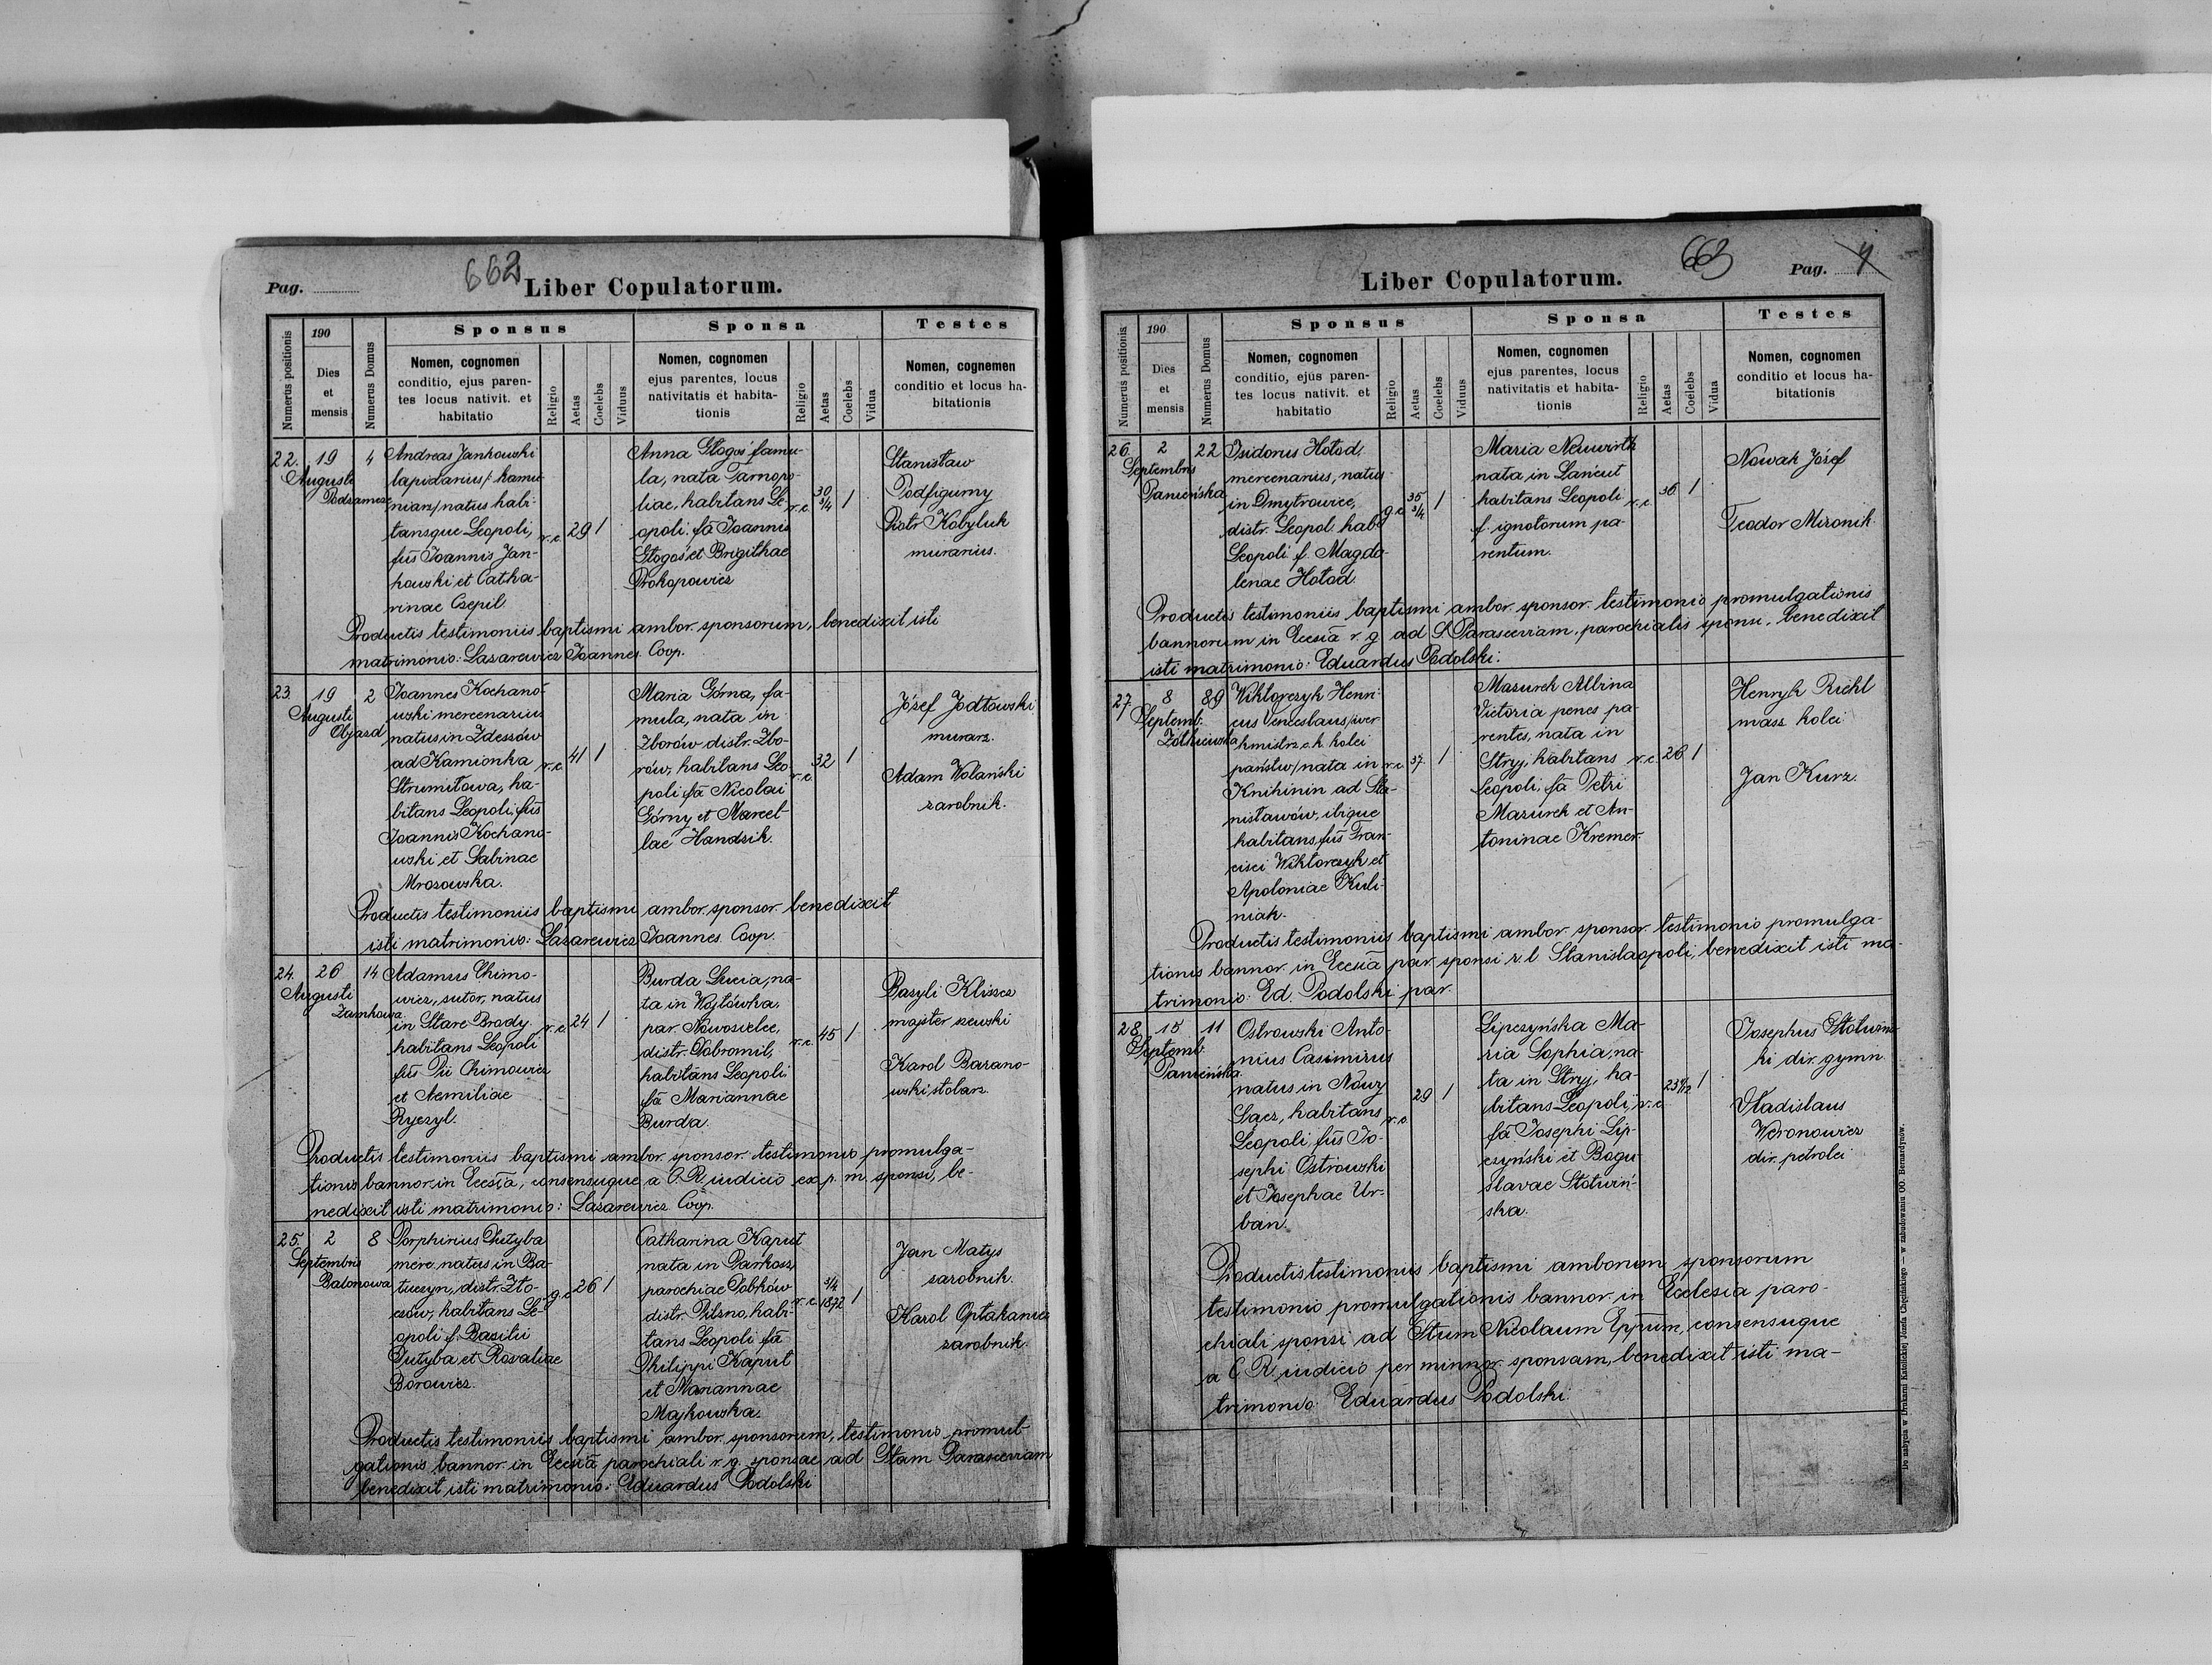 662
Pag.
Liber Copulatorum.
Numerus positionis
190
Dies
et
mensis
Numerus Domus
Sponsus
Nomen, cognomen
conditio, ejus paren-
tes locus nativit. et
habitatio
Religio
Aetas
Coelebs
Viduus
Sponsa
Nomen, cognomen
ejus parentes, locus
nativitatis et habita-
tionis
Religio
Aetas
Coelebs
Vidua
Testes
Nomen, cognemen
conditio et locus ha-
bitationis
22.
19
Augusti
Podzamcze
4
Andreas Jankowski
lapidarius /: kamie-
niarz/ natus habi-
tansque Leopoli,
fūs Joannis Jan-
kowski et Catha-
rinae Czepil.
r. c.
29
1
Anna Głogoś famu-
la, nata Tarnopo-
liae, habitans Le-
opoli, fā Joannis
Głogoś et Brigithae
Prokopowicz
r. c.
30 3/4
1
Stanisław
Podfigurny
Piotr Kobyluk
murarius.
Productis testimoniis baptismi ambor. sponsorum, benedixit isti
matrimonio: Lazarewicz Joannes. Coop.
23.
19
Augusti
Objazd
2
Joannes Kochano-
wski mercenarius
natus in Zdeszów
ad Kamionka
Strumiłowa, ha-
bitans Leopoli, fūs
Joannis Kochano-
wski et Sabinae
Mrozowska.
r. c.
41
1
Maria Górna, fa-
mula, nata in
Zborów distr. Zbo-
rów, habitans Leo-
poli fā Nicolai
Górny et Marcel-
lae Handzik.
r. c.
32
1
Józef Jodłowski
murarz.
Adam Wolański
zarobnik.
Productis testimoniis baptismi ambor. sponsor. benedixit
isti matrimonio: Lazarewicz Joannes. Coop.
24.
26
Augusti
Zamkowa
14
Adamus Chimo-
wicz, sutor, natus
in Stare Brody
habitans Leopoli
fūs Pii Chimowicz
et Aemiliae
Ryczyl.
r. c.
24
1
Burda Lucia, na-
ta in Wojtówka,
par. Nowosielce,
distr. Dobromil,
habitans Leopoli
fā Mariannae
Burda.
r. c.
45
1
Bazyli Kliszcz
majster szewski
Karol Barano-
wski stolarz.
Productis testimoniis baptismi ambor. sponsor. testimonio promulga-
tionis bannor. in Ecclā, consensuque a C. R. iudicio ex p. m. sponsi, be-
nedixit isti matrimonio: Lazarewicz Coop.
25.
2
Septembris
Balonowa
8
Porphirius Dutyba
merc. natus in Ba-
tuczyn, distr. Zło-
czów, habitans Le-
opoli f. Basilii
Dutyba et Rosaliae
Borowicz.
g. c.
26
1
Catharina Kaput
nata in Parkosz
parochiae Dobków
distr. Pilzno, habi-
tans Leopoli fā
Philippi Kaput
et Mariannae
Majkowska.
r. c.
3/4
1872
1
Jan Matys
zarobnik.
Karol Optakanicz
zarobnik.
Productis testimoniis baptismi ambor. sponsorum, testimonio promul-
gationis bannor. in Ecclā parochiali r. g. sponsae ad Stam Parasceviam
benedixit isti matrimonio: Eduardus Podolski
663
Pag. 7
Liber Copulatorum.
Numerus positionis
190
Dies
et
mensis
Numerus Domus
Sponsus
Nomen, cognomen
conditio, ejus paren-
tes locus nativit. et
habitatio
Religio
Aetas
Coelebs
Viduus
Sponsa
Nomen, cognomen
ejus parentes, locus
nativitatis et habita-
tionis
Religio
Aetas
Coelebs
Vidua
Testes
Nomen, cognomen
conditio et locus ha-
bitationis
26.
2
Septembris
Panieńska
22
Isidorus Hołod,
mercenarius, natus
in Dmytrowice,
distr. Leopol. hab.
Leopoli f. Magda-
lenae Hołod.
g. c.
35 3/4
1
Maria Neuwirth
nata in Łańcut
habitans Leopoli
f. ignotorum pa-
rentum.
r. c.
36
1
Nowak Józef
Teodor Mironik.
Productis testimoniis baptismi ambor. sponsor. testimonio promulgationis
bannorum in Ecclesiā r. g. ad S. Parasceviam, parochialis sponsi, benedixit
isti matrimonio: Eduardus Podolski.
27.
8
Septemb.
Żółkiewska
89
Wiktorczyk Henri-
cus Venceslaus /wer-
kmistrz c. k. kolei
państw/ nata in
Knihinin ad Sta-
nisławów, ibique
habitans, fūs Fran-
cisci Wiktorczyk et
Apoloniae Kuli-
niak.
r. c.
37.
1
Mazurek Albina
Victoria penes pa-
rentes, nata in
Stryj, habitans
Leopoli, fā Petri
Mazurek et An-
toninae Kremer.
r. c.
26
1
Henryk Richl
masz. kolei
Jan Kurz.
Productis testimoniis baptismi ambor. sponsor. testimonio promulga-
tionis bannor. in Ecclesiā par. sponsi r. l. Stanislaopoli, benedixit isti ma-
trimonio: Ed. Podolski par.
28.
15
Septemb.
Panieńska.
11
Ostrowski Anto-
nius Casimirus
natus in Nowy
Sącz, habitans
Leopoli, fūs Jo-
sephi Ostrowski
et Josephae Ur-
ban.
r. c.
29
1
Lipczyńska Ma-
ria Sophia, na-
ta in Stryj, ha-
bitans Leopoli,
fā Josephi Lip-
czyński et Bogu-
slavae Słotwiń-
ska.
r. c.
1
Josephus Słotwiń-
ki dir. gymn.
Vladislaus
Weronowicz
dir. petrolei
Productis testimoniis baptismi amborum sponsorum
testimonio promulgationis bannor. in Ecclesia paro-
chiali sponsi ad Stum Nicolaum Eppum, consensuque
a C. R. iudicio per minnor. sponsam, benedixit isti ma-
trimonio: Eduardus Podolski
Do nabycia w Drukarni Katolickiej Józefa Chęcińskiego — w zabudowaniu OO. Bernardynów.